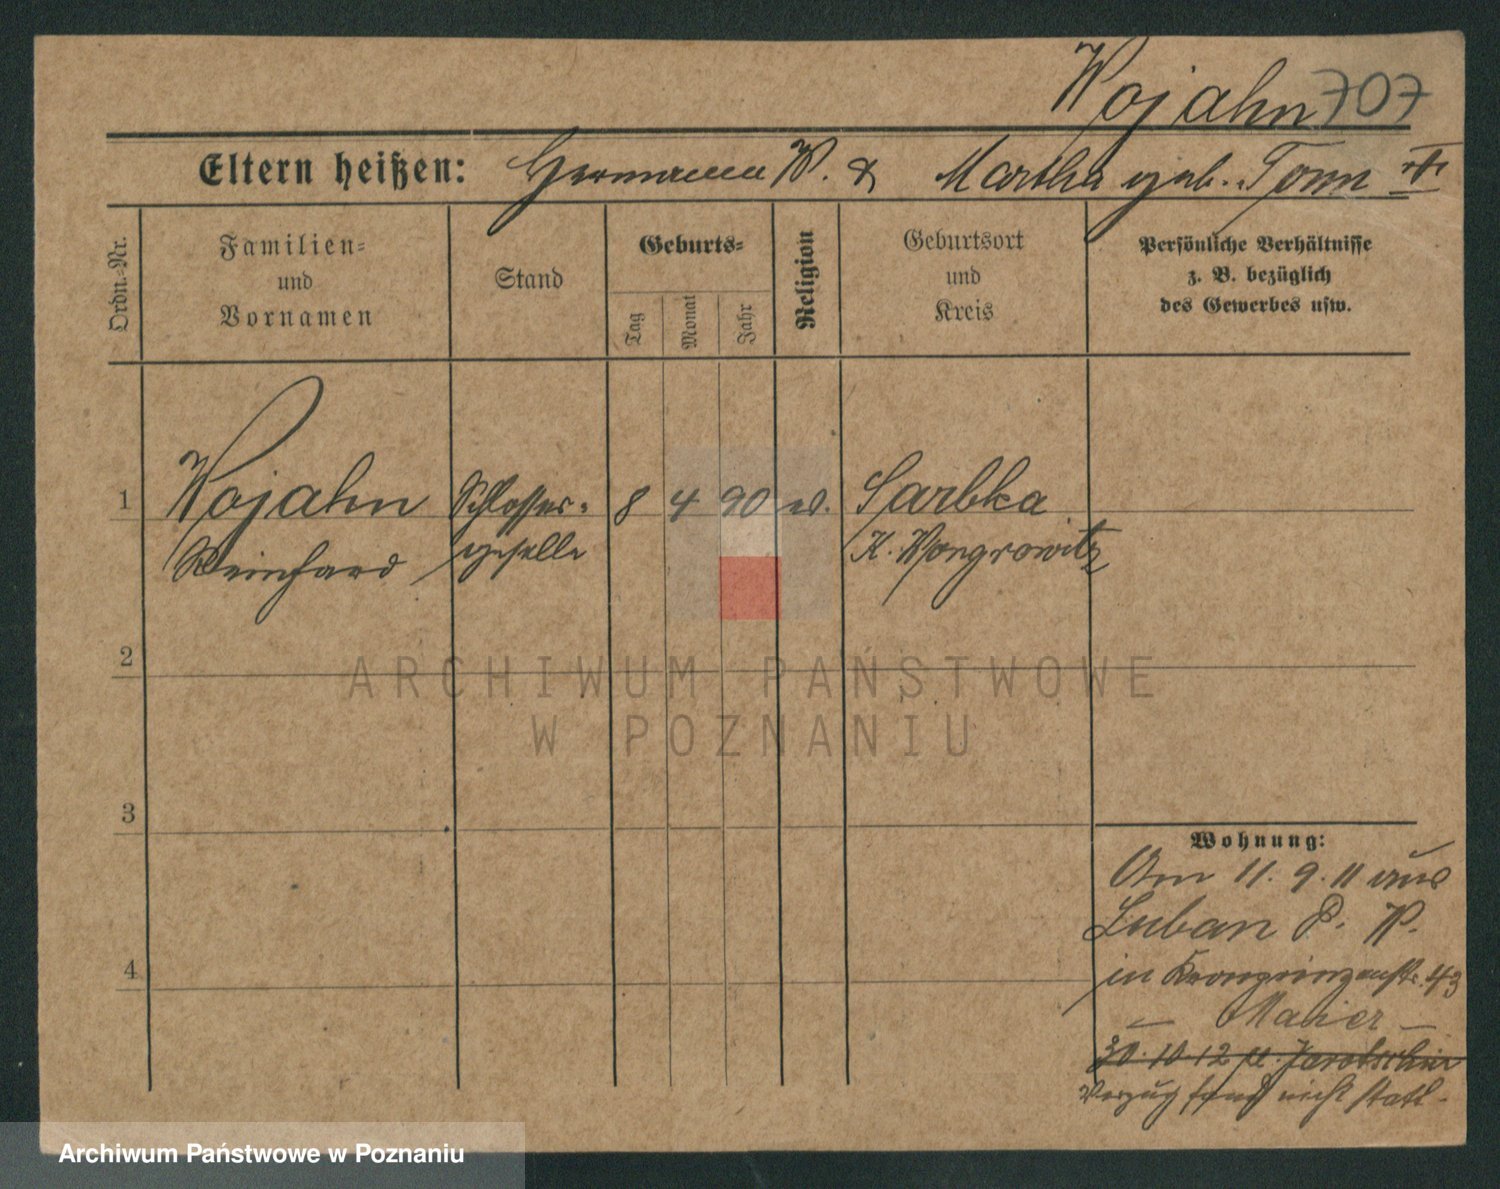 Wojahn 707
Eltern heißen: Hermann W. & Martha geb. Tonn
Ordn.-Nr.
Familien-
und
Vornamen
Stand
Geburts-
Tag
Monat
Jahr
Religion
Geburtsort
und
Kreis
Persönliche Verhältnisse
z. B. bezüglich
des Gewerbes usw.
1
Wojahn
Reinhard
Schlosser-
geselle
8 4 90 ev.
Sarbka
K. Wongrowitz
2
ARCHIWUM PAŃSTWOWE
W POZNANIU
3
4
Wohnung:
Am 11. 9. 11 aus
Luban P. W.
in Kronprinzenstr. 43
— Maier —
30. 10. 12 n. Jarotschin
Verzug fand nicht statt.
Archiwum Państwowe w Poznaniu